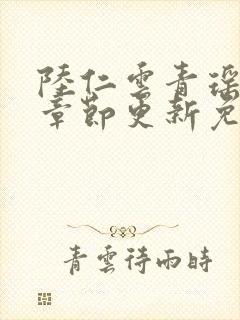 陸仁雲青瑶
章節更新免
青雲待雨時